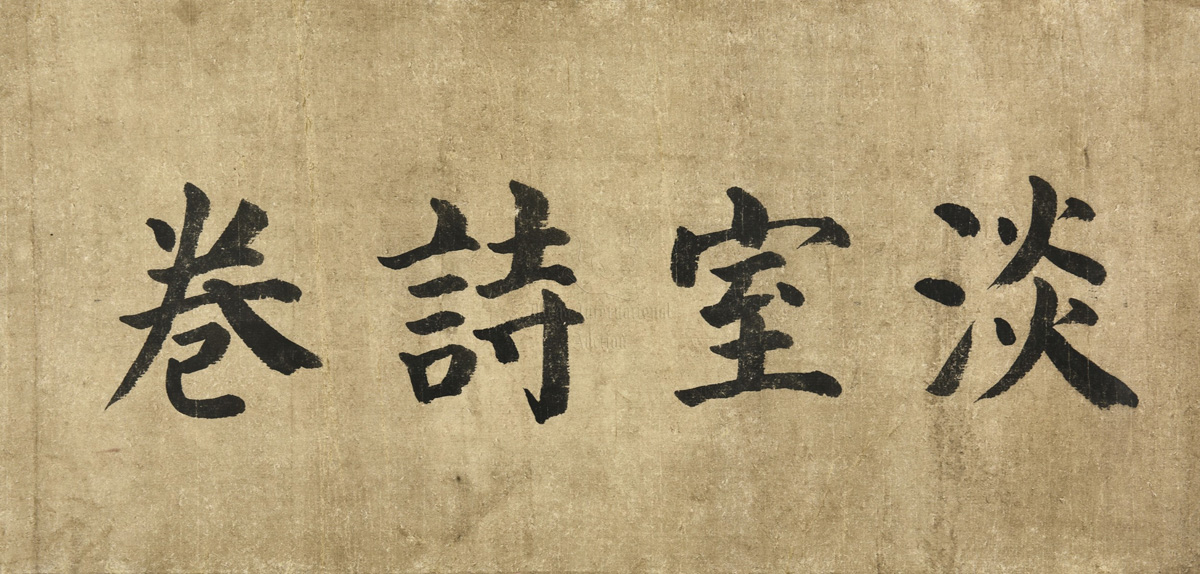 淡室詩卷